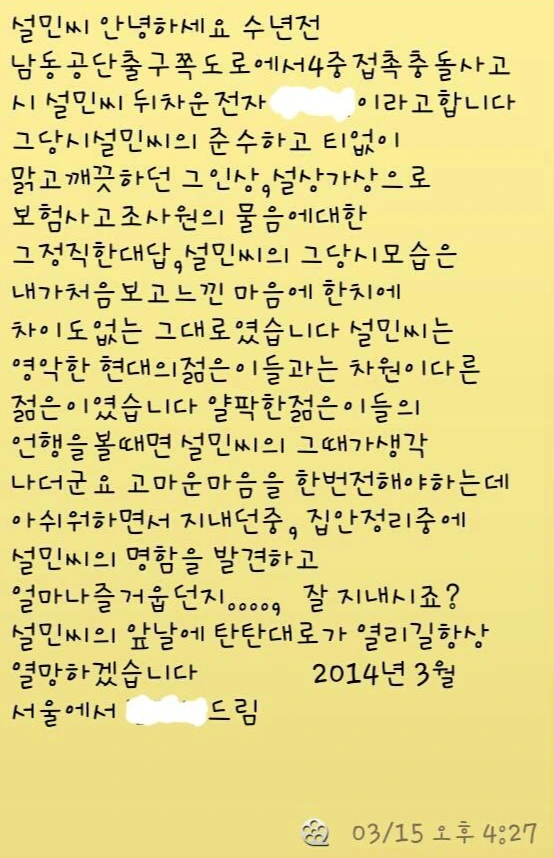 설민씨 안녕하세요 수년전
남동공단출구쪽도로에서4중접촉충돌사고
시 설민씨 뒤차운전자 이라고합니다
그당시설민씨의 준수하고 티없이
맑고깨끗하던 그인상,설상가상으로
보험사고조사원의 물음에대한
그정직한대답,설민씨의 그당시모습은
내가처음보고느낀 마음에 한치에
차이도없는 그대로였습니다 설민씨는
영악한 현대의젊은이들과는 차원이다른
젊은이였습니다 얄팍한젊은이들의
언행을볼때면 설민씨의 그때가생각
나더군요 고마운마음을 한번전해야하는데
아쉬워하면서 지내던중, 집안정리중에
설민씨의 명함을 발견하고
얼마나즐거웁던지....., 잘 지내시죠?
설민씨의 앞날에 탄탄대로가 열리길항상
열망하겠습니다 2014년 3월
서울에서 드림
03/15 오후 4:27